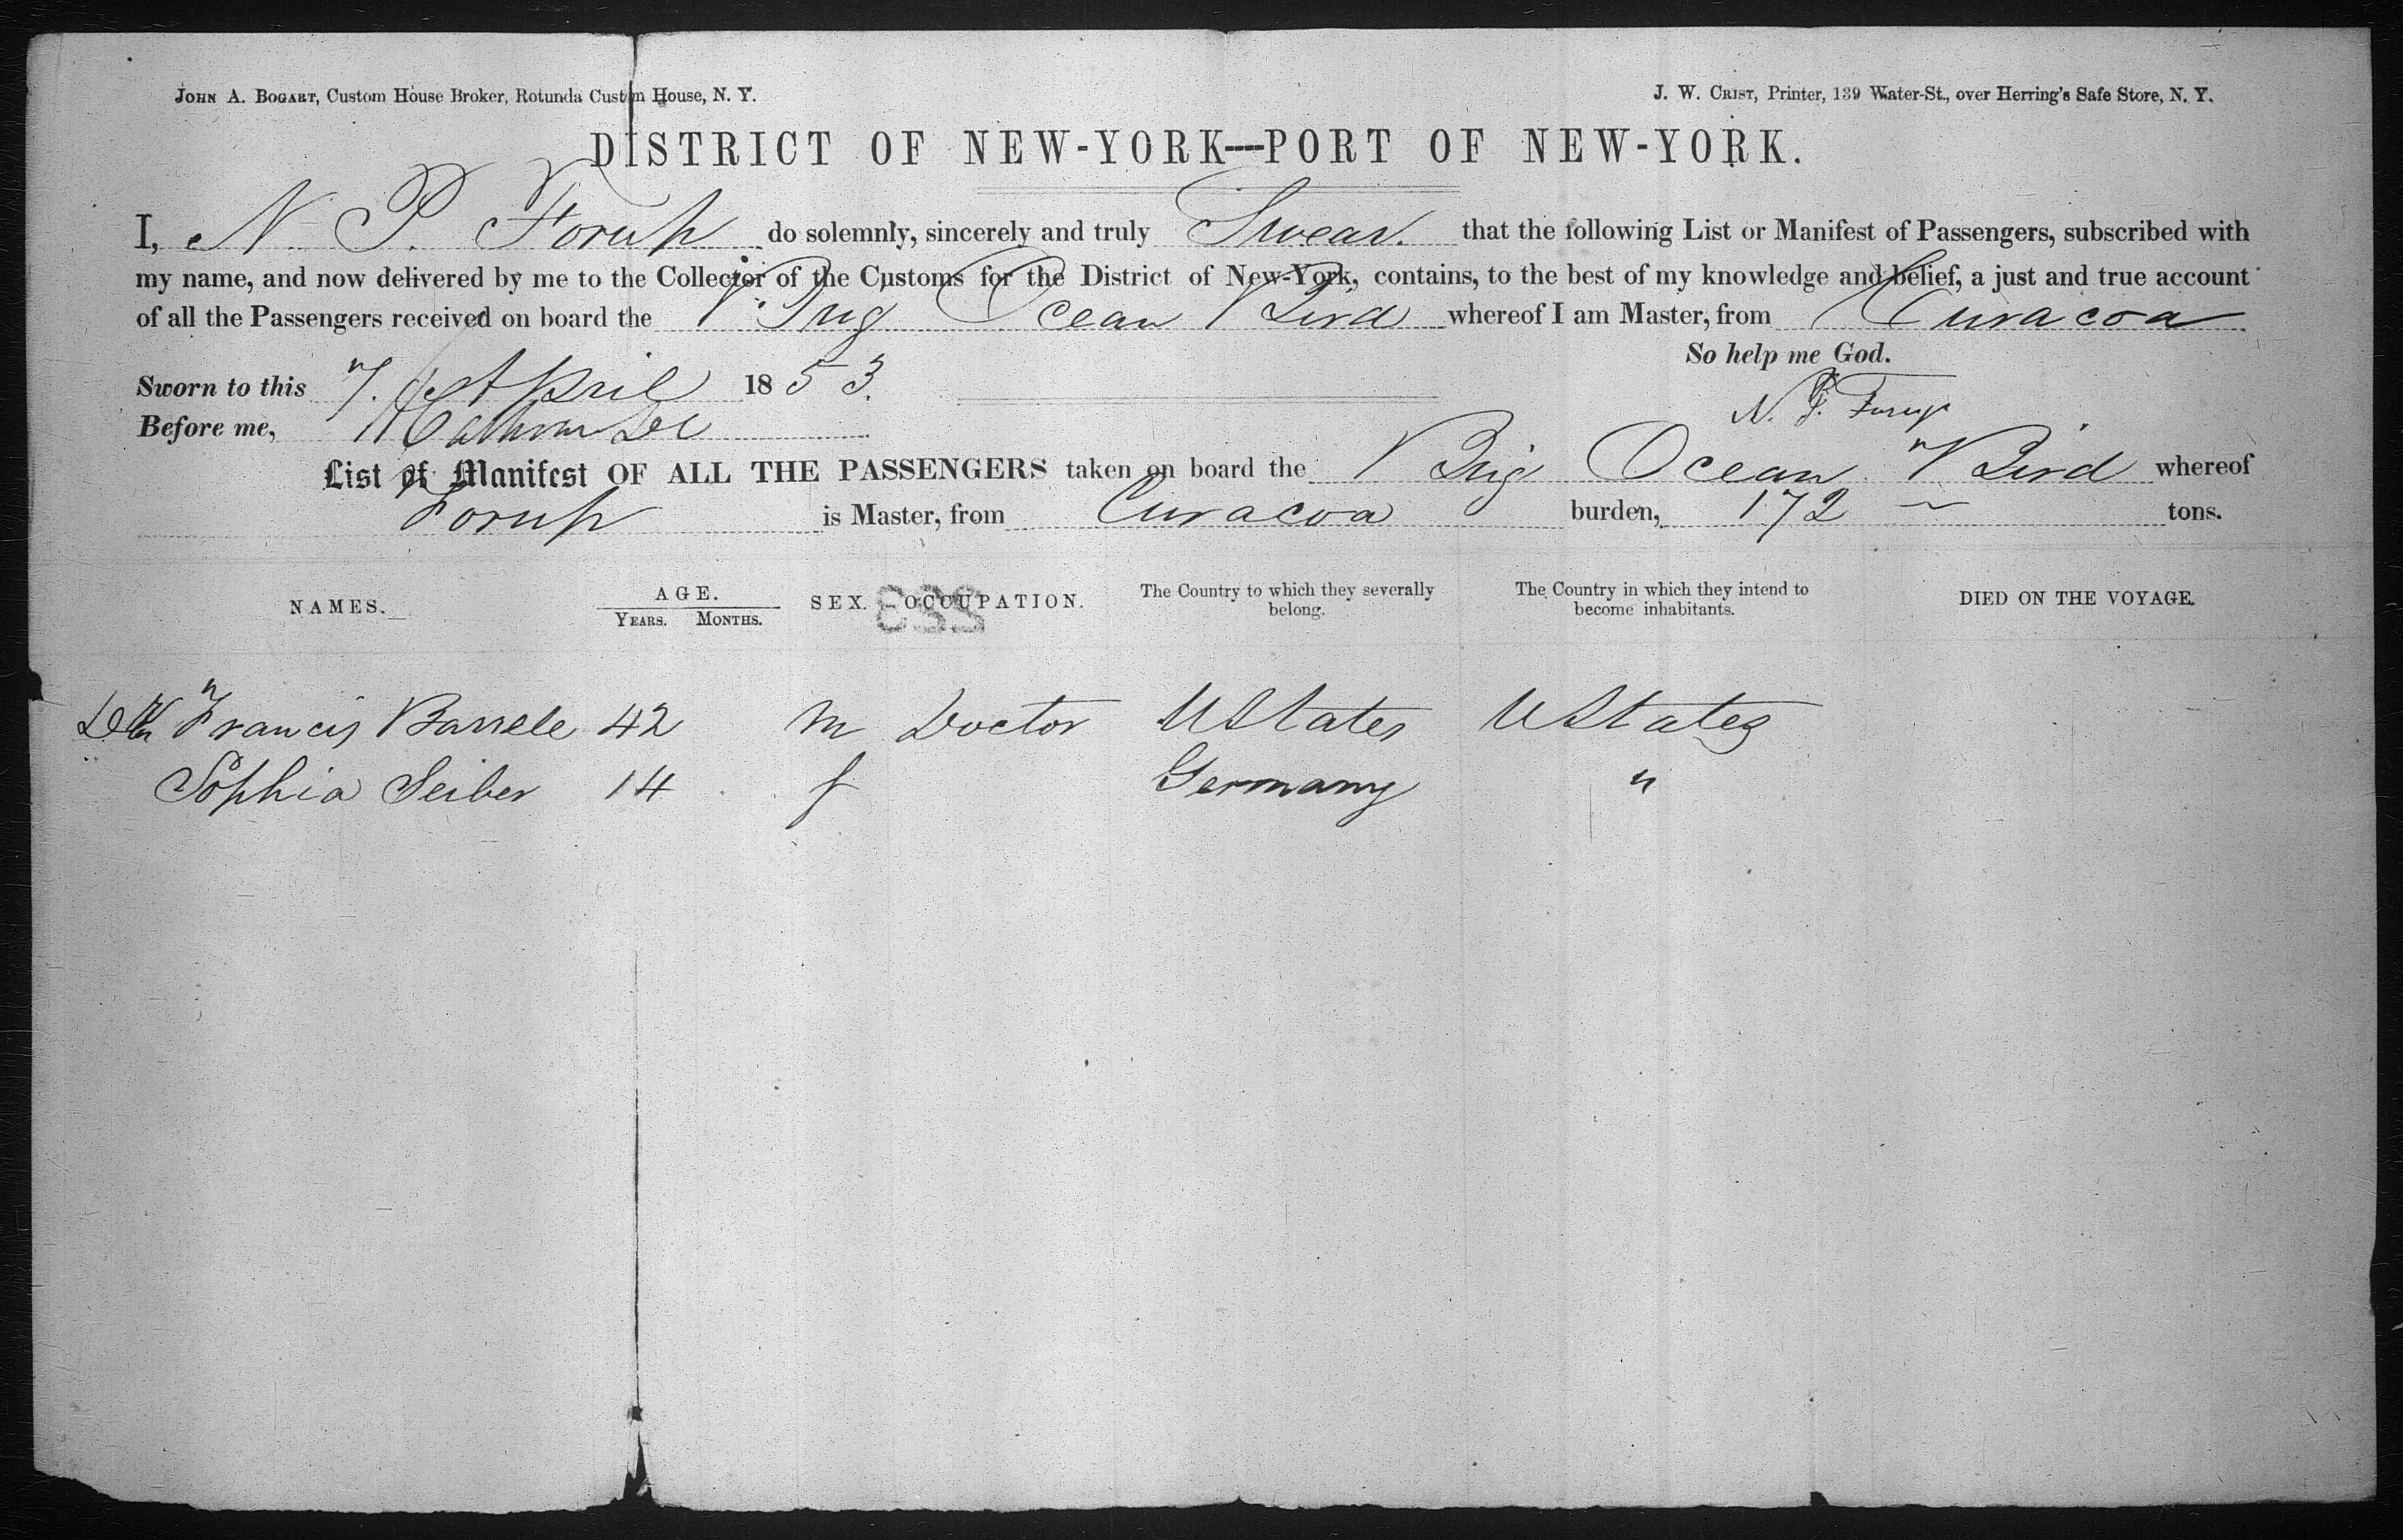 JOHN A. BOGART, Custom House Broker, Rotunda Custom House, N. Y.
J. W. CRIST, Printer, 139 Water-St., over Herring's Safe Store, N. Y.
DISTRICT OF NEW-YORK—PORT OF NEW-YORK.
I, N. P. Forup do solemnly, sincerely and truly Swear. that the following List or Manifest of Passengers, subscribed with
my name, and now delivered by me to the Collector of the Customs for the District of New-York, contains, to the best of my knowledge and belief, a just and true account
of all the Passengers received on board the Brig Ocean Bird whereof I am Master, from Curacoa
So help me God.
Sworn to this 7. April 1853.
N. P. Forup
Before me,
List of Manifest OF ALL THE PASSENGERS taken on board the Brig Ocean Bird whereof
Forup is Master, from Curacoa burden, 172 tons.
NAMES. AGE. SEX. OCCUPATION. The Country to which they severally belong. The Country in which they intend to become inhabitants. DIED ON THE VOYAGE.
YEARS. MONTHS.
Francis Barrele 42 m Doctor UStates UStates
Sophia Seiber 14 f Germany "